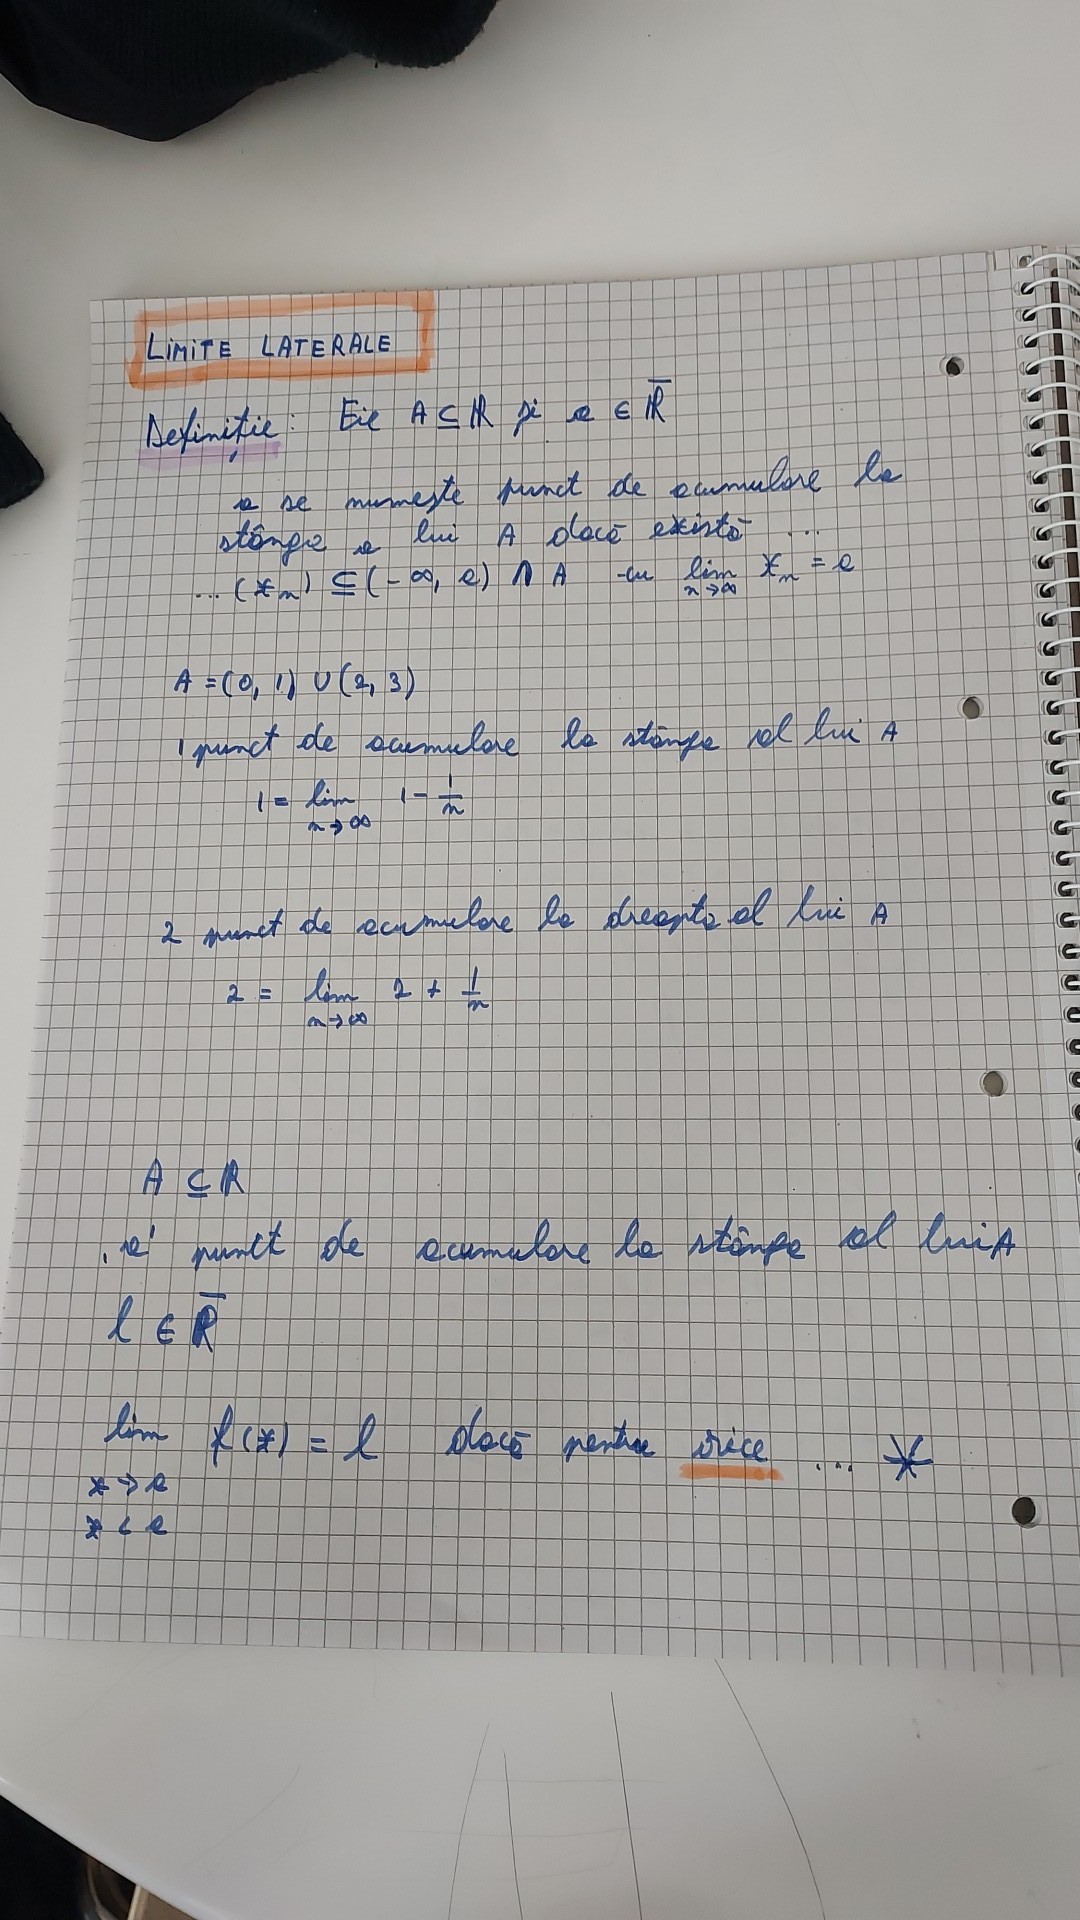 LIMITE LATERALE
Definiție: Fie A ⊆ ℝ și a ∈ ℝ̄
a se numește punct de acumulare la
stânga a lui A dacă există ...
... (xₙ) ⊆ (-∞, a) ∩ A cu lim xₙ = a
n→∞
A = (0, 1) ∪ (2, 3)
1 punct de acumulare la stânga al lui A
1 = lim 1 - 1/n
n→∞
2 punct de acumulare la dreapta al lui A
2 = lim 2 + 1/n
n→∞
A ⊆ ℝ
, a' punct de acumulare la stânga al lui A
l ∈ ℝ̄
lim f(x) = l dacă pentru orice ... *
x → a
x < a